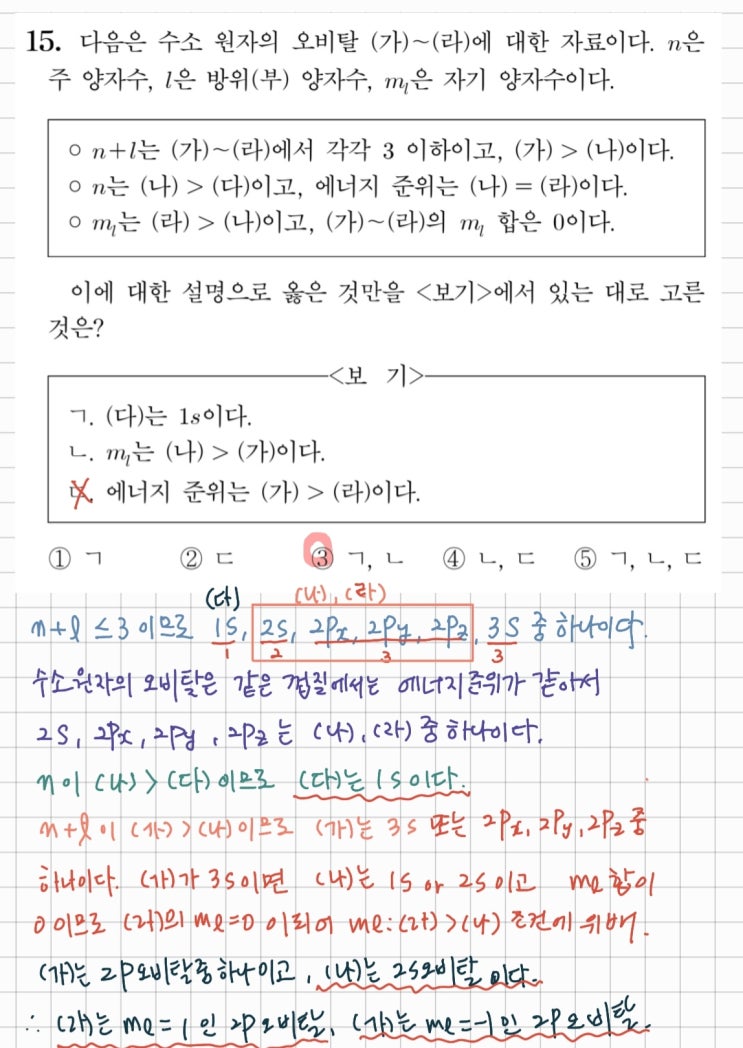 15. 다음은 수소 원자의 오비탈 (가)~(라)에 대한 자료이다. n은
주 양자수, l은 방위(부) 양자수, mₗ은 자기 양자수이다.
○ n+l는 (가)~(라)에서 각각 3 이하이고, (가) > (나)이다.
○ n는 (나) > (다)이고, 에너지 준위는 (나) = (라)이다.
○ mₗ는 (라) > (나)이고, (가)~(라)의 mₗ 합은 0이다.
이에 대한 설명으로 옳은 것만을 <보기>에서 있는 대로 고른
것은?
<보 기>
ㄱ. (다)는 1s이다.
ㄴ. mₗ는 (나) > (가)이다.
ㄷ. 에너지 준위는 (가) > (라)이다.
① ㄱ ② ㄷ ③ ㄱ, ㄴ ④ ㄴ, ㄷ ⑤ ㄱ, ㄴ, ㄷ
(다) (나), (라)
n+l ≤3 이므로 1S, 2S, 2Px, 2Py, 2Pz, 3S 중 하나이다.
1 2 3 3
수소원자의 오비탈은 같은 껍질에서는 에너지준위가 같아서
2S, 2Px, 2Py, 2Pz는 (나), (라) 중 하나이다.
n이 (나) > (다) 이므로 (다)는 1S이다.
n+l이 (가) > (나) 이므로 (가)는 3S 또는 2Px, 2Py, 2Pz 중
하나이다. (가)가 3S이면 (나)는 1S or 2S이고 ml 합이
0 이므로 (라)의 ml=0 이되어 ml: (라) > (나) 조건에 위배.
(가)는 2P오비탈중 하나이고, (나)는 2S오비탈 이다.
∴ (라)는 ml=1 인 2P오비탈, (가)는 ml=-1 인 2P오비탈.